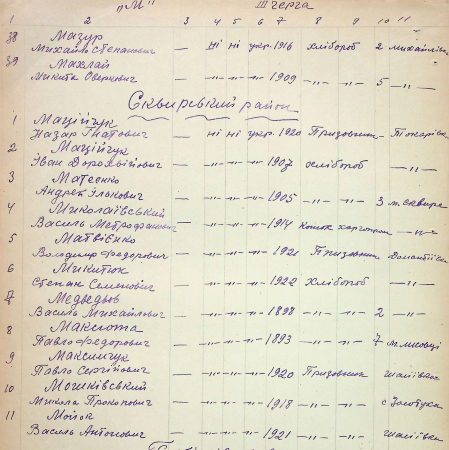 "М"
1 2 3 4 5 6 7 8 9 10 11
38 Мазур
Михайло Степанович — ні ні укр. 1916 хлібороб 2 Михайлівка
39 Махлай
Микита Оверкович — -"- -"- -"- 1909 -"- -"- 5 -"-
Сквирський район
1 Маційчук
Назар Гнатович — ні ні укр. 1920 Призовник - Токарівка
2 Маційчук
Іван Дорохвійович — -"- -"- -"- 1907 хлібороб -"-
3 Матенко
Андрей Ількович — -"- -"- -"- 1905 -"- -"- 3 м. Сквира
4 Миколаївський
Василь Метрофанович — -"- -"- -"- 1914 -"-
5 Матвієнко
Володимир Федорович — -"- -"- -"- 1921 Призовник
6 Микитюк
Степан Семенович — -"- -"- -"- 1922 Хлібороб -"-
7 Медведьов
Василь Михайлович — -"- -"- -"- 1898 -"- -"- 2 -"-
8 Максюта
Павло Федорович — -"- -"- -"- 1893 -"- -"- 7
9 Максимчук
Павло Сергійович — -"- -"- -"- 1920 Призовник
10 Мошківський
Микола Прокопович — -"- -"- -"- 1918 -"- -"-
11 Мойок
Василь Антонович — -"- -"- -"- 1921 -"- -"-